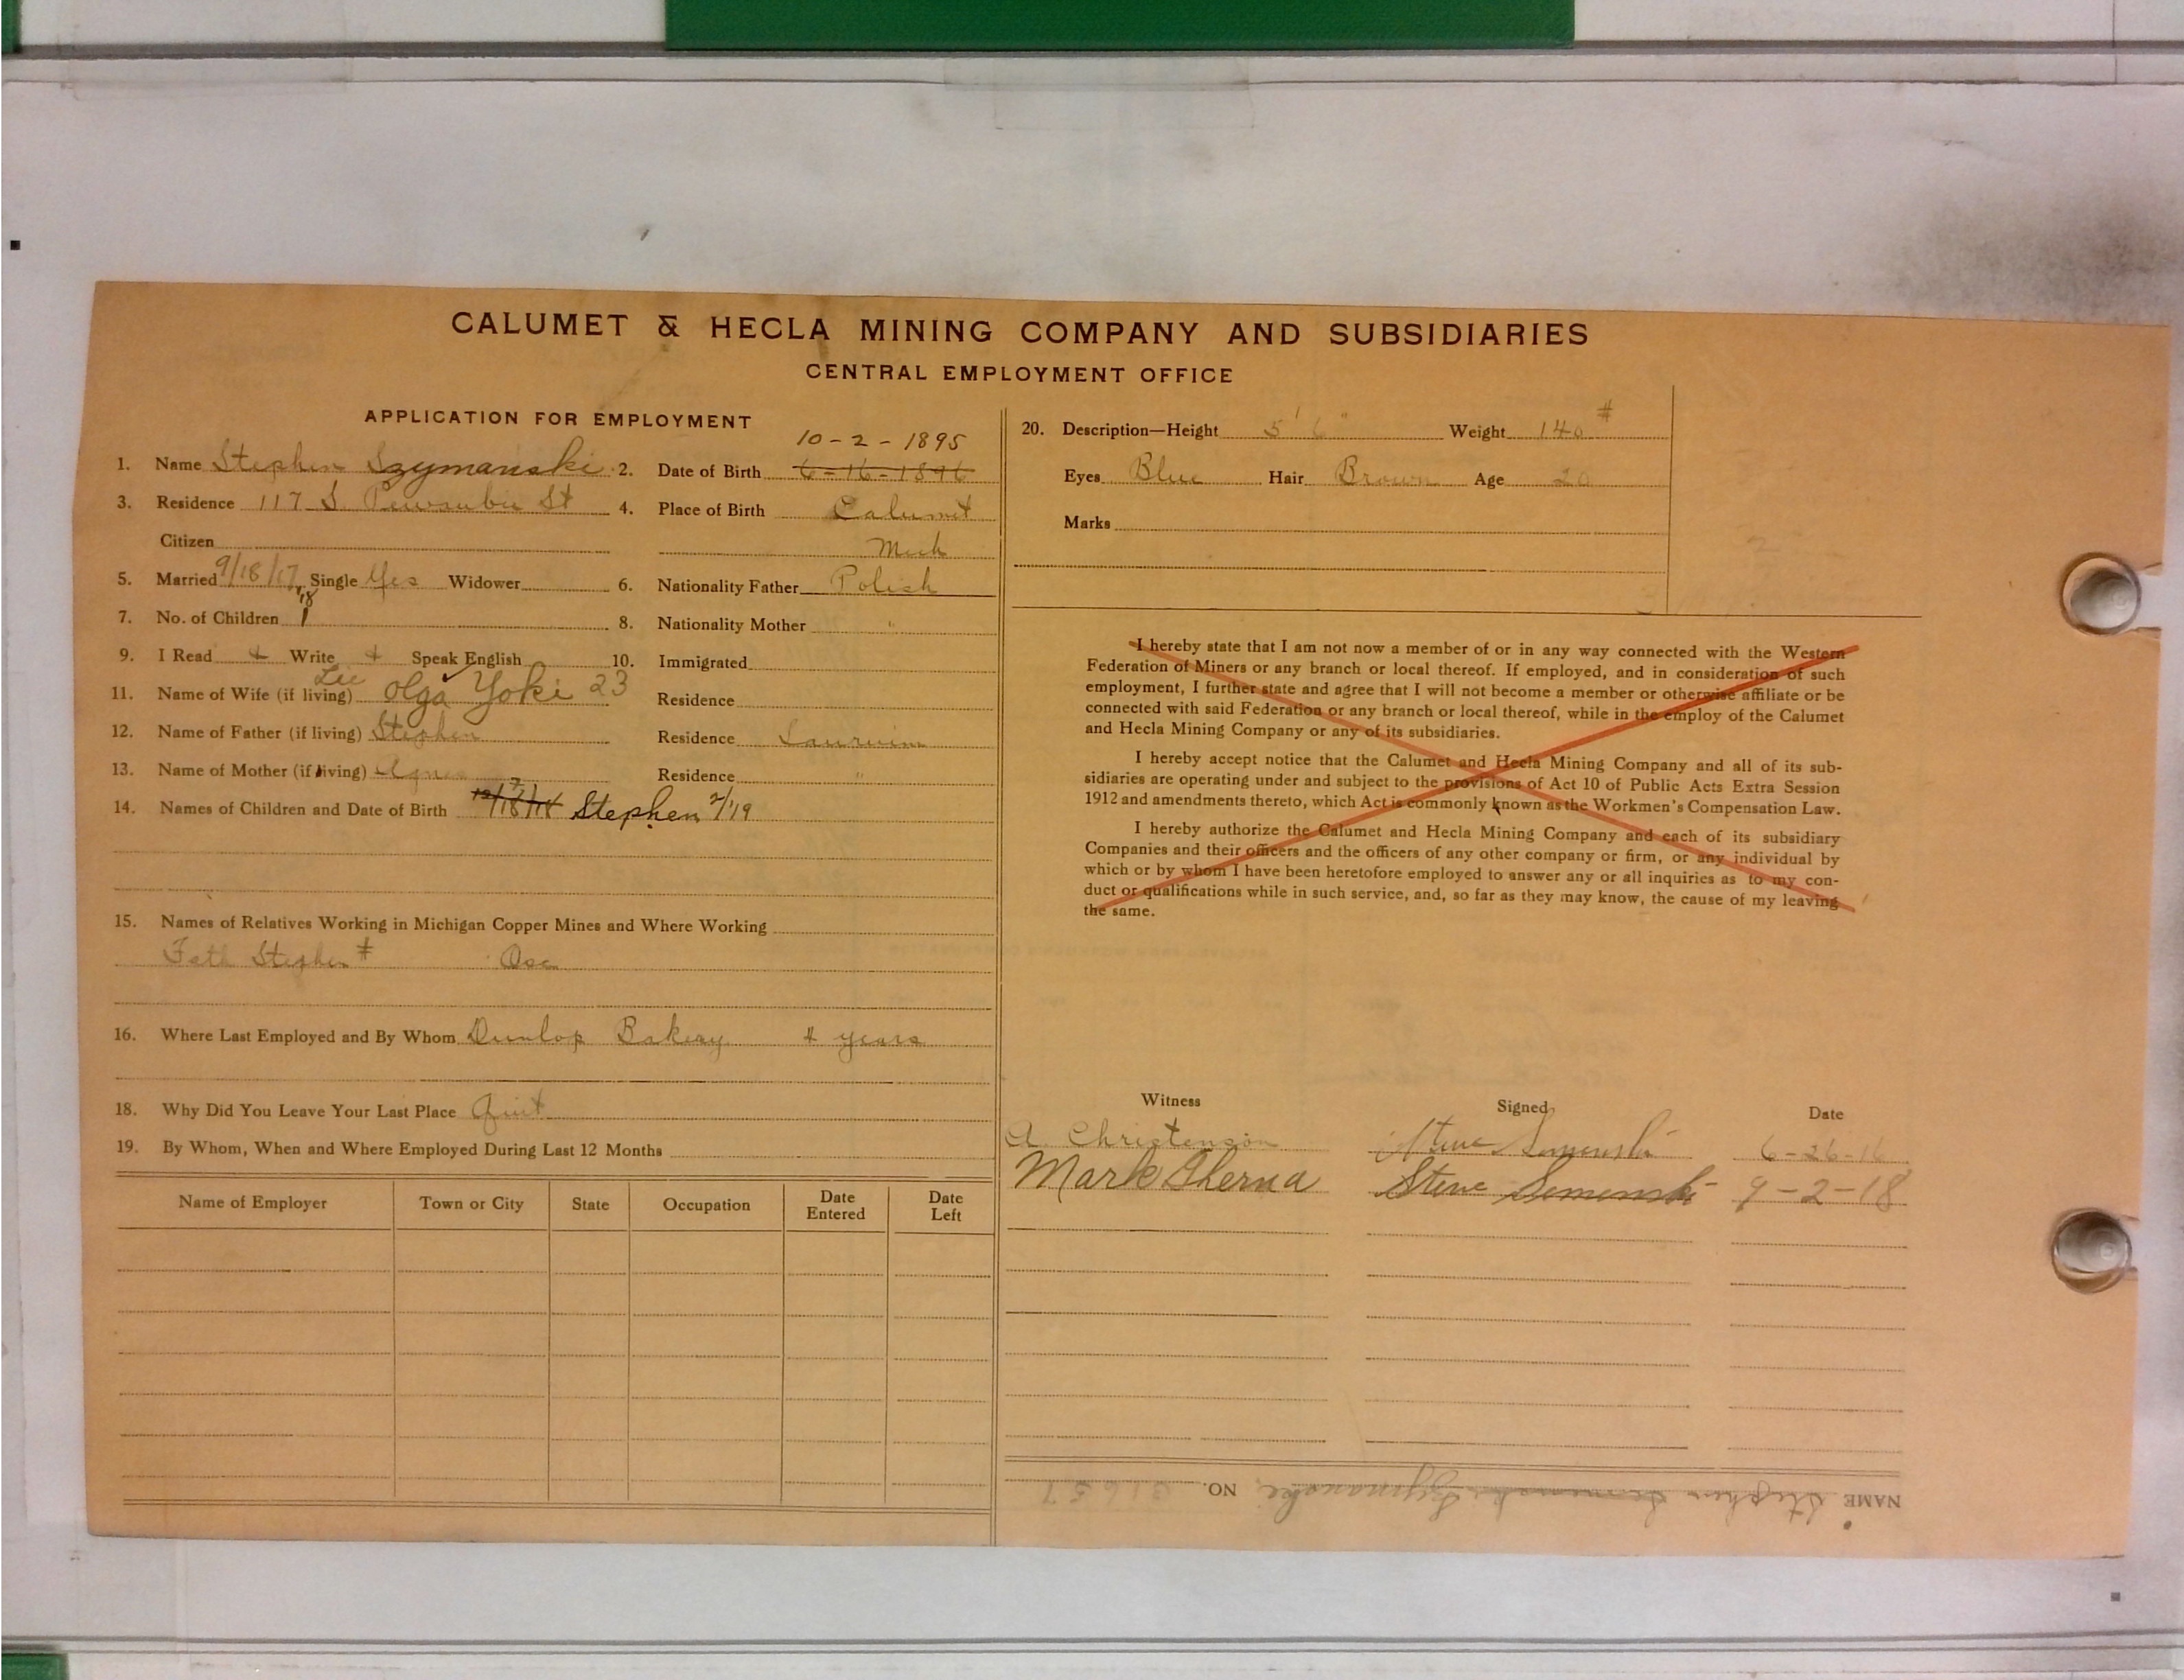 CALUMET & HECLA MINING COMPANY AND SUBSIDIARIES
CENTRAL EMPLOYMENT OFFICE
APPLICATION FOR EMPLOYMENT
10-2-1895
1. Name Stephen Szymanski 2. Date of Birth 6-16-1896
3. Residence 117 S. Pewabic St 4. Place of Birth Calumet
Citizen Mich
5. Married 9/18/17 Single Yes Widower 6. Nationality Father Polish
7. No. of Children 1 8. Nationality Mother "
9. I Read + Write + Speak English 10. Immigrated
11. Name of Wife (if living) Olga Yoki 23 Residence
12. Name of Father (if living) Stephen Residence Laurium
13. Name of Mother (if living) Agnes Residence "
14. Names of Children and Date of Birth Stephen 2/19
15. Names of Relatives Working in Michigan Copper Mines and Where Working
Fath Stephen # Osc
16. Where Last Employed and By Whom Dunlop Bakery 4 years
18. Why Did You Leave Your Last Place Quit
19. By Whom, When and Where Employed During Last 12 Months
Name of Employer Town or City State Occupation Date Entered Date Left
20. Description—Height 5' 6" Weight 140 #
Eyes Blue Hair Brown Age 20
Marks
I hereby state that I am not now a member of or in any way connected with the Western
Federation of Miners or any branch or local thereof. If employed, and in consideration of such
employment, I further state and agree that I will not become a member or otherwise affiliate or be
connected with said Federation or any branch or local thereof, while in the employ of the Calumet
and Hecla Mining Company or any of its subsidiaries.
I hereby accept notice that the Calumet and Hecla Mining Company and all of its sub-
sidiaries are operating under and subject to the provisions of Act 10 of Public Acts Extra Session
1912 and amendments thereto, which Act is commonly known as the Workmen's Compensation Law.
I hereby authorize the Calumet and Hecla Mining Company and each of its subsidiary
Companies and their officers and the officers of any other company or firm, or any individual by
which or by whom I have been heretofore employed to answer any or all inquiries as to my con-
duct or qualifications while in such service, and, so far as they may know, the cause of my leaving
the same.
Witness Signed Date
A. Christenson Steve Semenski 6-26-16
Mark Sherna Steve Semenski 9-2-18
NAME Stephen Semenski Szymanski NO. 31657